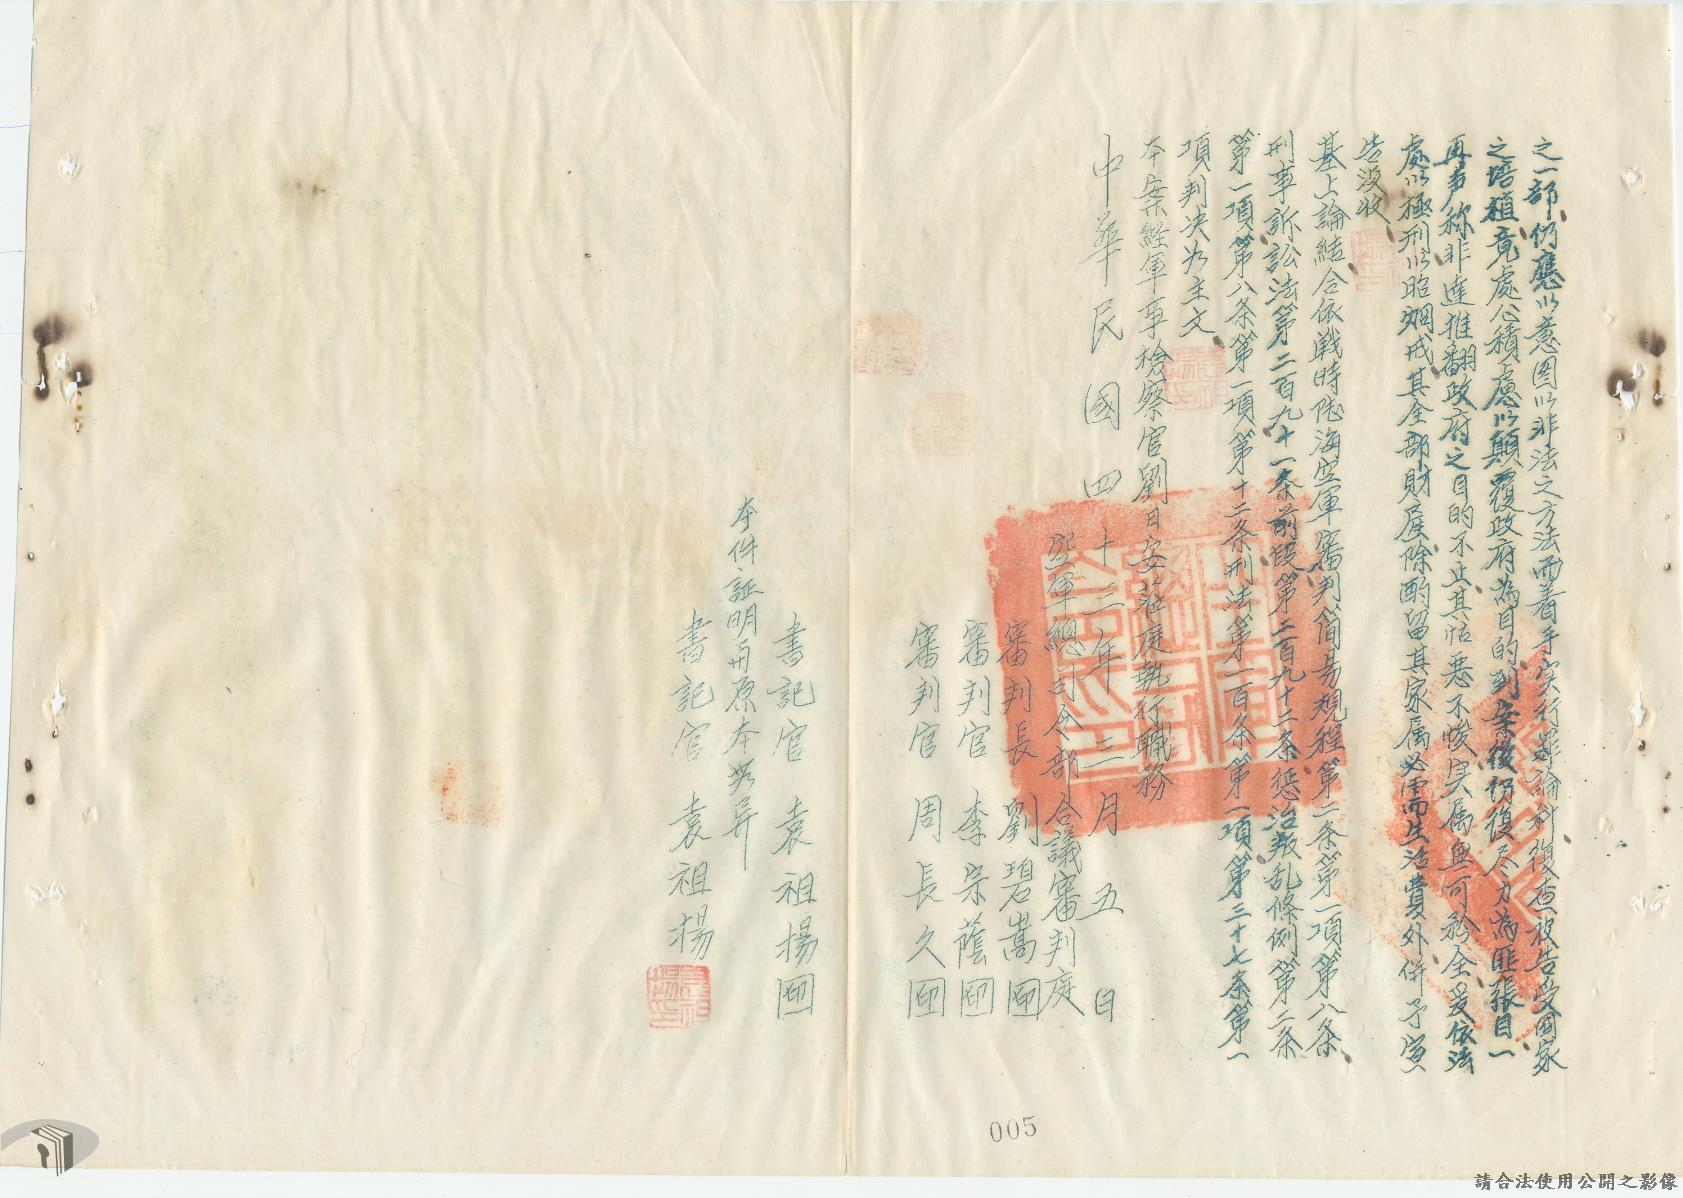 之一部仍應以意图以非法之方法而着手实行罪論科復查被告受国家
之培植竟處心積慮以顛覆政府為目的到案後仍復尽力為匪張目一
再声称非達推翻政府之目的不止其怙惡不悛实属無可矜全爰依法
處以極刑以昭烱戒其全部財產除酌留其家属必需生活費外併予宣
告没收
基上論結合依戰時陸海空軍審判簡易規程第二条第一項第八条
刑事訴訟法第二百九十一条前段第二百九十二条惩治叛乱條例第二条
第一項第八条第一項第十二条刑法第一百条第一項第三十七条第一
項判决为主文
本案經軍事檢察官劉日安蒞庭執行職務
中華民國四十三年三月五日
空軍總司令部合議審判庭
審判長 劉碧嵩 印
審判官 李宗蔭 印
審判官 周長久 印
書記官 袁祖揚 印
本件証明與原本無異
書記官 袁祖揚
袁祖揚印
005
請合法使用公開之影像